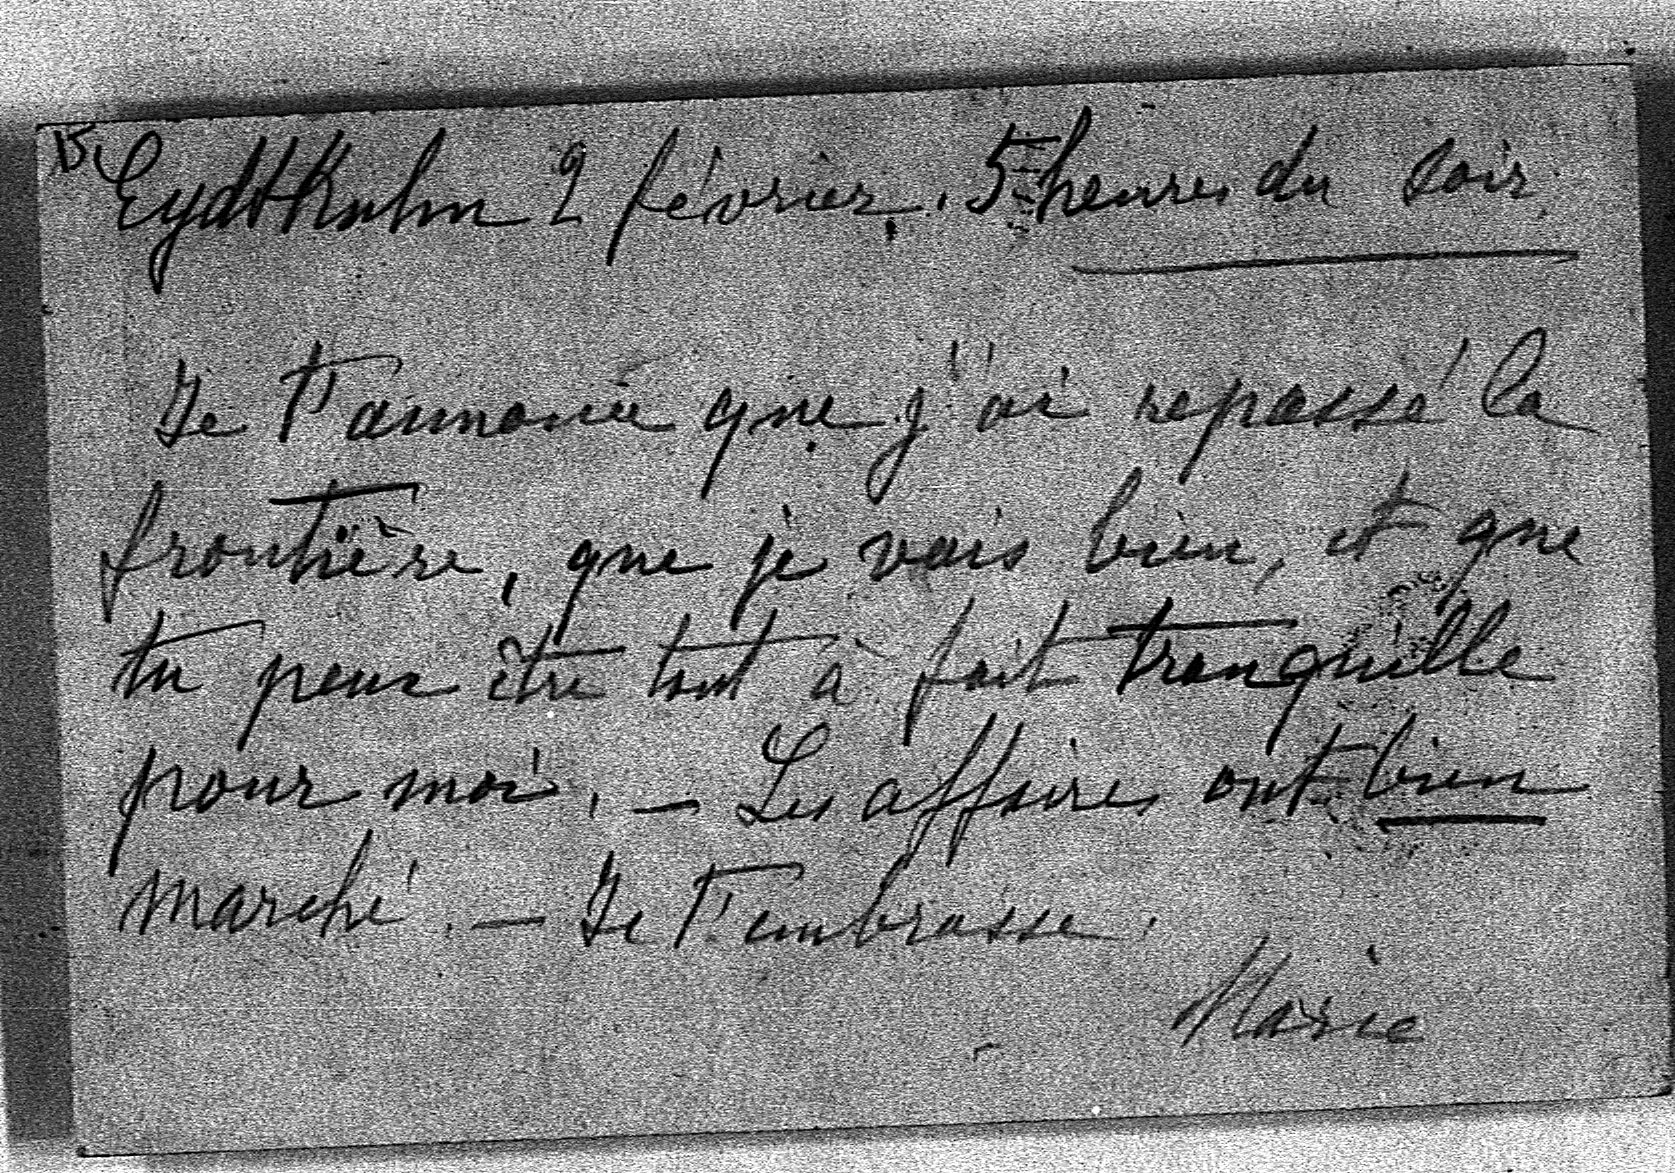 Eydtkuhm 2 février. 5 heures du soir
Je t'annonce que j'ai repassé la
frontière, que je vais bien, et que
tu peux être tout à fait tranquille
pour moi. — Les affaires ont bien
marché. — Je t'embrasse.
Marie